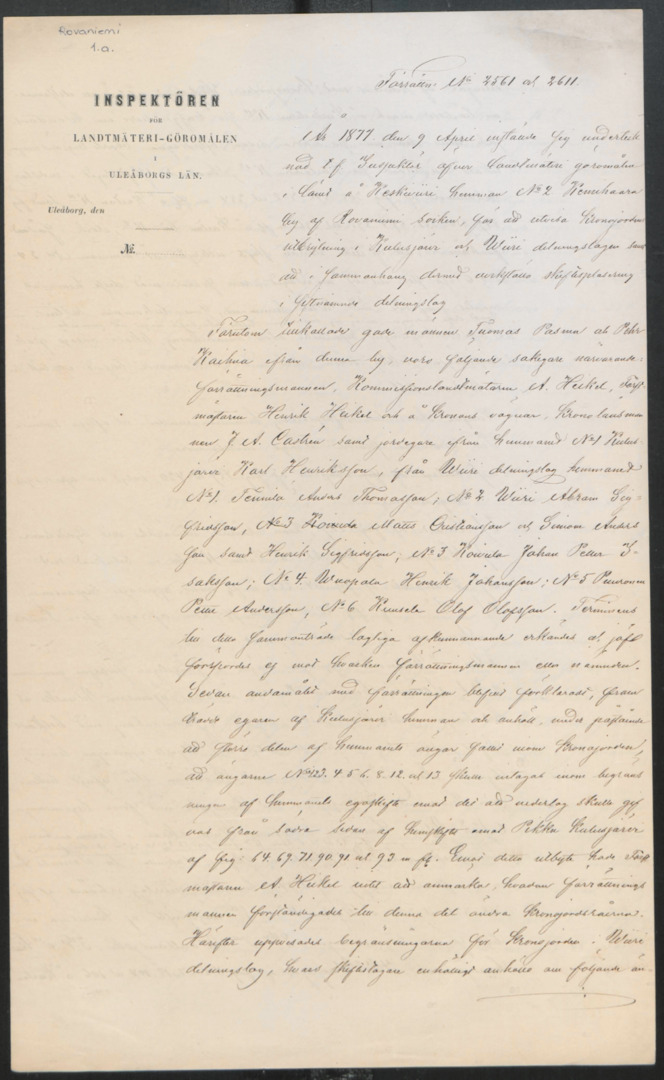 Rovaniemi
1.a.
Förrättn. No 2561 och 2611.
INSPEKTÖREN
FÖR
LANDTMÄTERI-GÖROMÅLEN
I
ULEÅBORGS LÄN.
Uleåborg, den
№.
År 1877 den 9 April instälde sig underteck-
nad t. f. Inspektör öfver Landtmäteri göromålen
i länet å Keskiwiiri hemman No 2
by af Rovaniemi socken, för att utreda kronojordens
utbrytning i Kulusjärvi och Wiiri delningslagen samt
att i sammanhang dermed verkställa skiftesplacering
i sistnämnde delningslag
Förutom inkallade gode männen Thomas Pasma och Petter
från denna by, voro följande sakegare närvarande:
förrättningsmannen, Kommissionslandtmätaren A. Heikel, Forst-
mästaren Henrik Heikel och å Kronans vägnar, Kronolänsman-
nen J. A. Castrén samt jordegare från hemmanet No 1 Kulus-
järvi Karl Henriksson, från Wiiri delningslag hemmanet
No 1 Tennila Anders Thomasson; No 2 Wiiri Abram Sig-
fridsson, No 3 Koivula Matts Christiansson och Simon Anders-
son samt Henrik Sigfridsson, No 3 Koivula Johan Petter I-
saksson; No 4 Wuopala Henrik Johansson; No 5
Petter Andersson, No 6 Olof Olofsson. Terminens
till detta sammanträde lagliga afkunnande erkändes och jäf
förspordes ej mot hvarken förrättningsmannen eller nämnden.
Sedan ändamålet med förrättningen blifvit förklarad, fram-
trädde egaren af Kulusjärvi hemman och anhöll, under påstående
att större delen af hemmanets ängar fallit inom kronojorden,
att ängarne No 123. 4 5 6. 8. 12. och 13 skulle intagas inom begräns-
ningen af hemmanets egoskifte emot det att vederlag skulle gif-
vas från södra sidan af hemskiftet emot Pekka Kulusjärvi
af fig: 64. 69. 71. 90. 91 och 93 m fl. Emot detta utbyte hade Forst-
mästaren A. Heikel intet att anmärka, hvadan förrättnings-
mannen förständigades till denna det ändra kronojordsråerna.
Härefter uppvisades begränsningarna för kronojorden i Wiiri
delningslag, hvars skiftslagare enhälligt anhöllo om följande än-